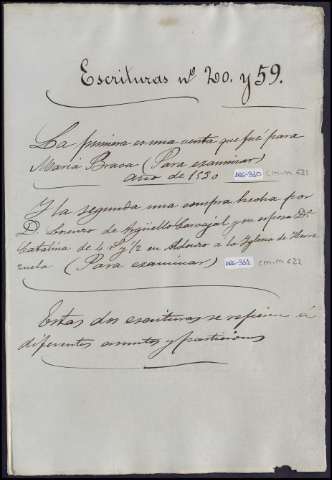 Escrituras nº 20. y 59.
La primera es una venta que fué para
Maria Brava (Para examinar)
año de 1530 LEG-360 c.m.m 631
Y la segunda una compra hecha por
D. Lorenzo de Argüello Carvajal y su esposa Dª
Catalina de 4 y 1/2 en Aldoiro a la Yglesia de
zuela (Para examinar) LEG-361 c.m.m 632
Estas dos escrituras se refieren á
diferentes asuntos y particiones